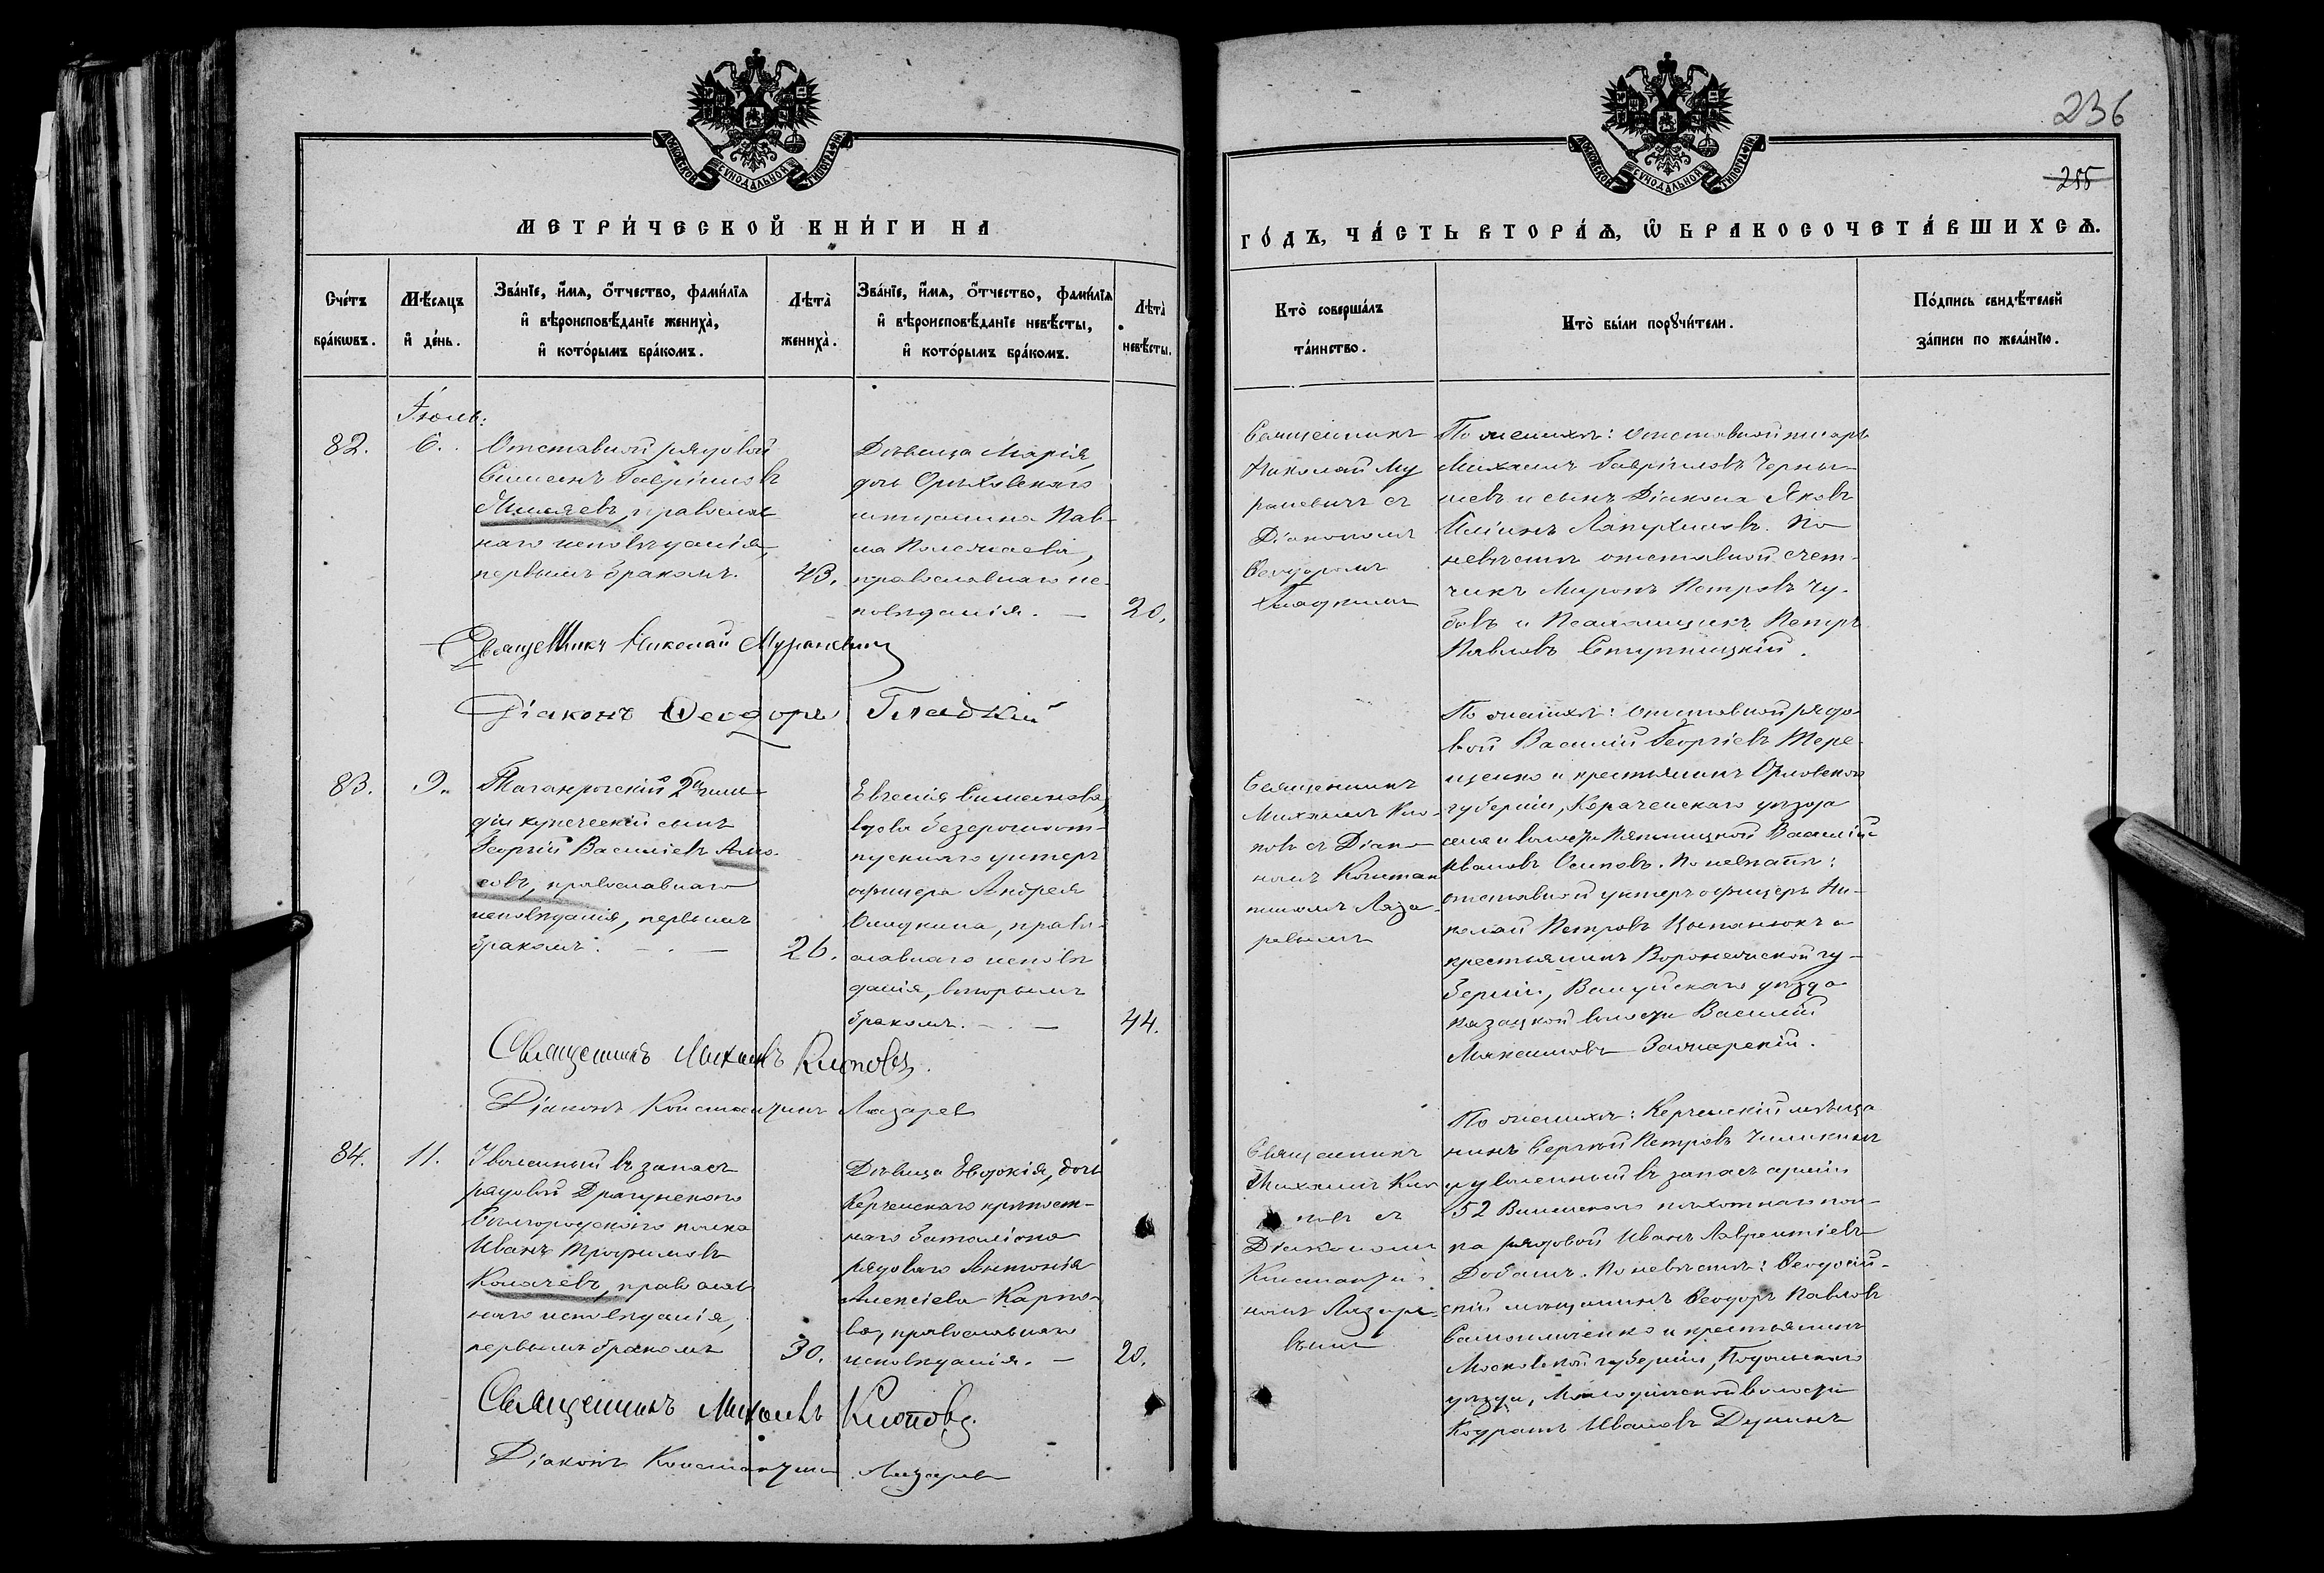 236
255
МОСКОВСКОЙ СѴНОДАЛЬНОЙ ТИПОГРАФІИ
МЕТРИ́ЧЕСКОЙ КНИ́ГИ НА
Сче́тъ бра́кѡвъ.
Мѣ́сяцъ и҆ де́нь.
Зва́нїе, и҆́мя, ѻ҆́тчество, фами́лїя
и҆ вѣроисповѣ́данїе жениха̀,
и҆ кото́рымъ бра́комъ.
Лѣта̀ жениха̀.
Зва́нїе, и҆́мя, ѻ҆́тчество, фами́лїя
и҆ вѣроисповѣ́данїе невѣ́сты,
и҆ кото́рымъ бра́комъ.
Лѣта̀ невѣ́сты.
Іюль.
82.
6.
Отставной рядовой
Симеонъ Гавріиловъ
православ-
наго исповѣданія,
первымъ бракомъ.
43.
Дѣвица Марія,
дочь Орѣховскаго
мѣщанина Пав-
ла Полежаева,
православнаго ис-
повѣданія. —
20.
Священникъ Николай Мураневич
Діаконъ Ѳеодоръ Гладкій
83.
9.
Таганрогскій 2й гиль-
діи купеческій сынъ
Георгій Василіевъ Амо-
совъ, православнаго
исповѣданія, первымъ
бракомъ. —
26.
Евгенія Симеонова,
вдова безсрочноот-
пускнаго унтеръ
офицера Андрея
православнаго исповѣ
данія, вторымъ
бракомъ. —
44.
Священникъ Михаилъ Клоповъ.
Діаконъ Константинъ Лазарев
84.
11.
Уволенный въ запасъ
рядовой Драгунскаго
Бѣлгородскаго полка
Иванъ Трофимовъ
Колачевъ, православ
наго исповѣданія,
первымъ бракомъ
30.
Дѣвица Евдокія, дочь
Керченскаго крѣпост-
наго баталіона
рядоваго Антонія
Алексіева Карпо-
ва, православнаго
исповѣданія. —
20.
Священникъ Михаилъ Клоповъ.
Діаконъ Константинъ Лазарев
МОСКОВСКОЙ СѴНОДАЛЬНОЙ ТИПОГРАФІИ
ГО́ДЪ, ЧА́СТЬ ВТОРА́Ѧ, Ѡ҆ БРАКОСОЧЕТА́ВШИХСѦ.
Кто̀ соверша́лъ
та́инство.
Кто̀ бы́ли порꙋчи́тели.
По́дпись свидѣ́телей
за́писи по жела́нїю.
Священникъ
Николай Му
раневичъ съ
Діакономъ
Ѳеодоромъ
Гладкимъ
По женихѣ: отставной писарь
Михаилъ Гавріиловъ Черны-
шевъ и сынъ Діакона Яковъ
По
невѣстѣ отставной счет-
чикъ Миронъ Петровъ Чу-
бовъ и Псаломщикъ Петръ
Павловъ Ступницкій.
Священникъ
Михаилъ Кло-
повъ съ Діако-
номъ Констан
тиномъ Лаза-
ревымъ
По женихѣ: отставной рядо-
вой Василій Георгіевъ Тере-
щенко и крестьянинъ Орловской
губерніи, Карачевскаго уѣзда
села и волости Пятницкой Василій
Ивановъ Осиповъ. По невѣстѣ:
отставной унтеръ офицеръ Ни-
колай Петровъ и
крестьянинъ Воронежской гу-
берніи, Валуйскаго уѣзда
Казацкой волости Василій
Священникъ
Михаилъ Кло
повъ съ
Діакономъ
Константи-
номъ Лазаре-
вымъ
По женихѣ: Керченскій мѣща
нинъ Сергѣй Петровъ
и уволенный въ запасъ арміи
52 Виленскаго пѣхотнаго пол-
ка рядовой Иванъ Лаврентіевъ
По невѣстѣ: Ѳеодосій-
скій мѣщанинъ Ѳеодоръ Павловъ
и крестьянинъ
Московской губерніи, Подольскаго
уѣзда, Молодинской волости
Кодратъ Ивановъ Дунинъ